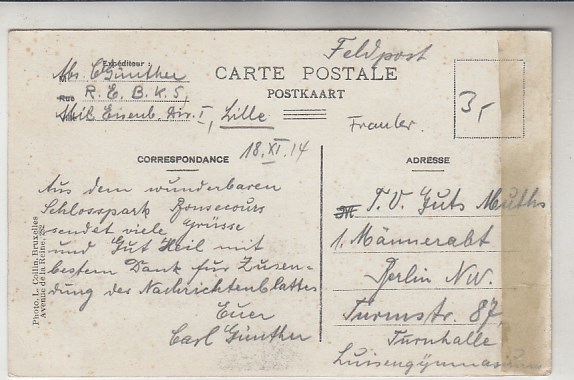 Feldpost
Expéditeur
Abs. C Günther
CARTE POSTALE
M
Rue R. E. B. K. 5,
POSTKAART
3,-
Mil. Eisenb. Dir. I, Lille
Franker.
18.XI.14
CORRESPONDANCE
ADRESSE
Aus dem wunderbaren
Schlosspark Bonsecours
sendet viele Grüsse
und Gut Heil mit
bestem Dank für Zusen-
dung des Nachrichtenblattes
Euer
Carl Günther
M T. V. Guts Muths
1. Männerabt
Berlin NW.
Turmstr. 87,
Turnhalle
Luisengymnasium
Photo. L. Collin, Bruxelles
Avenue de la Reine,